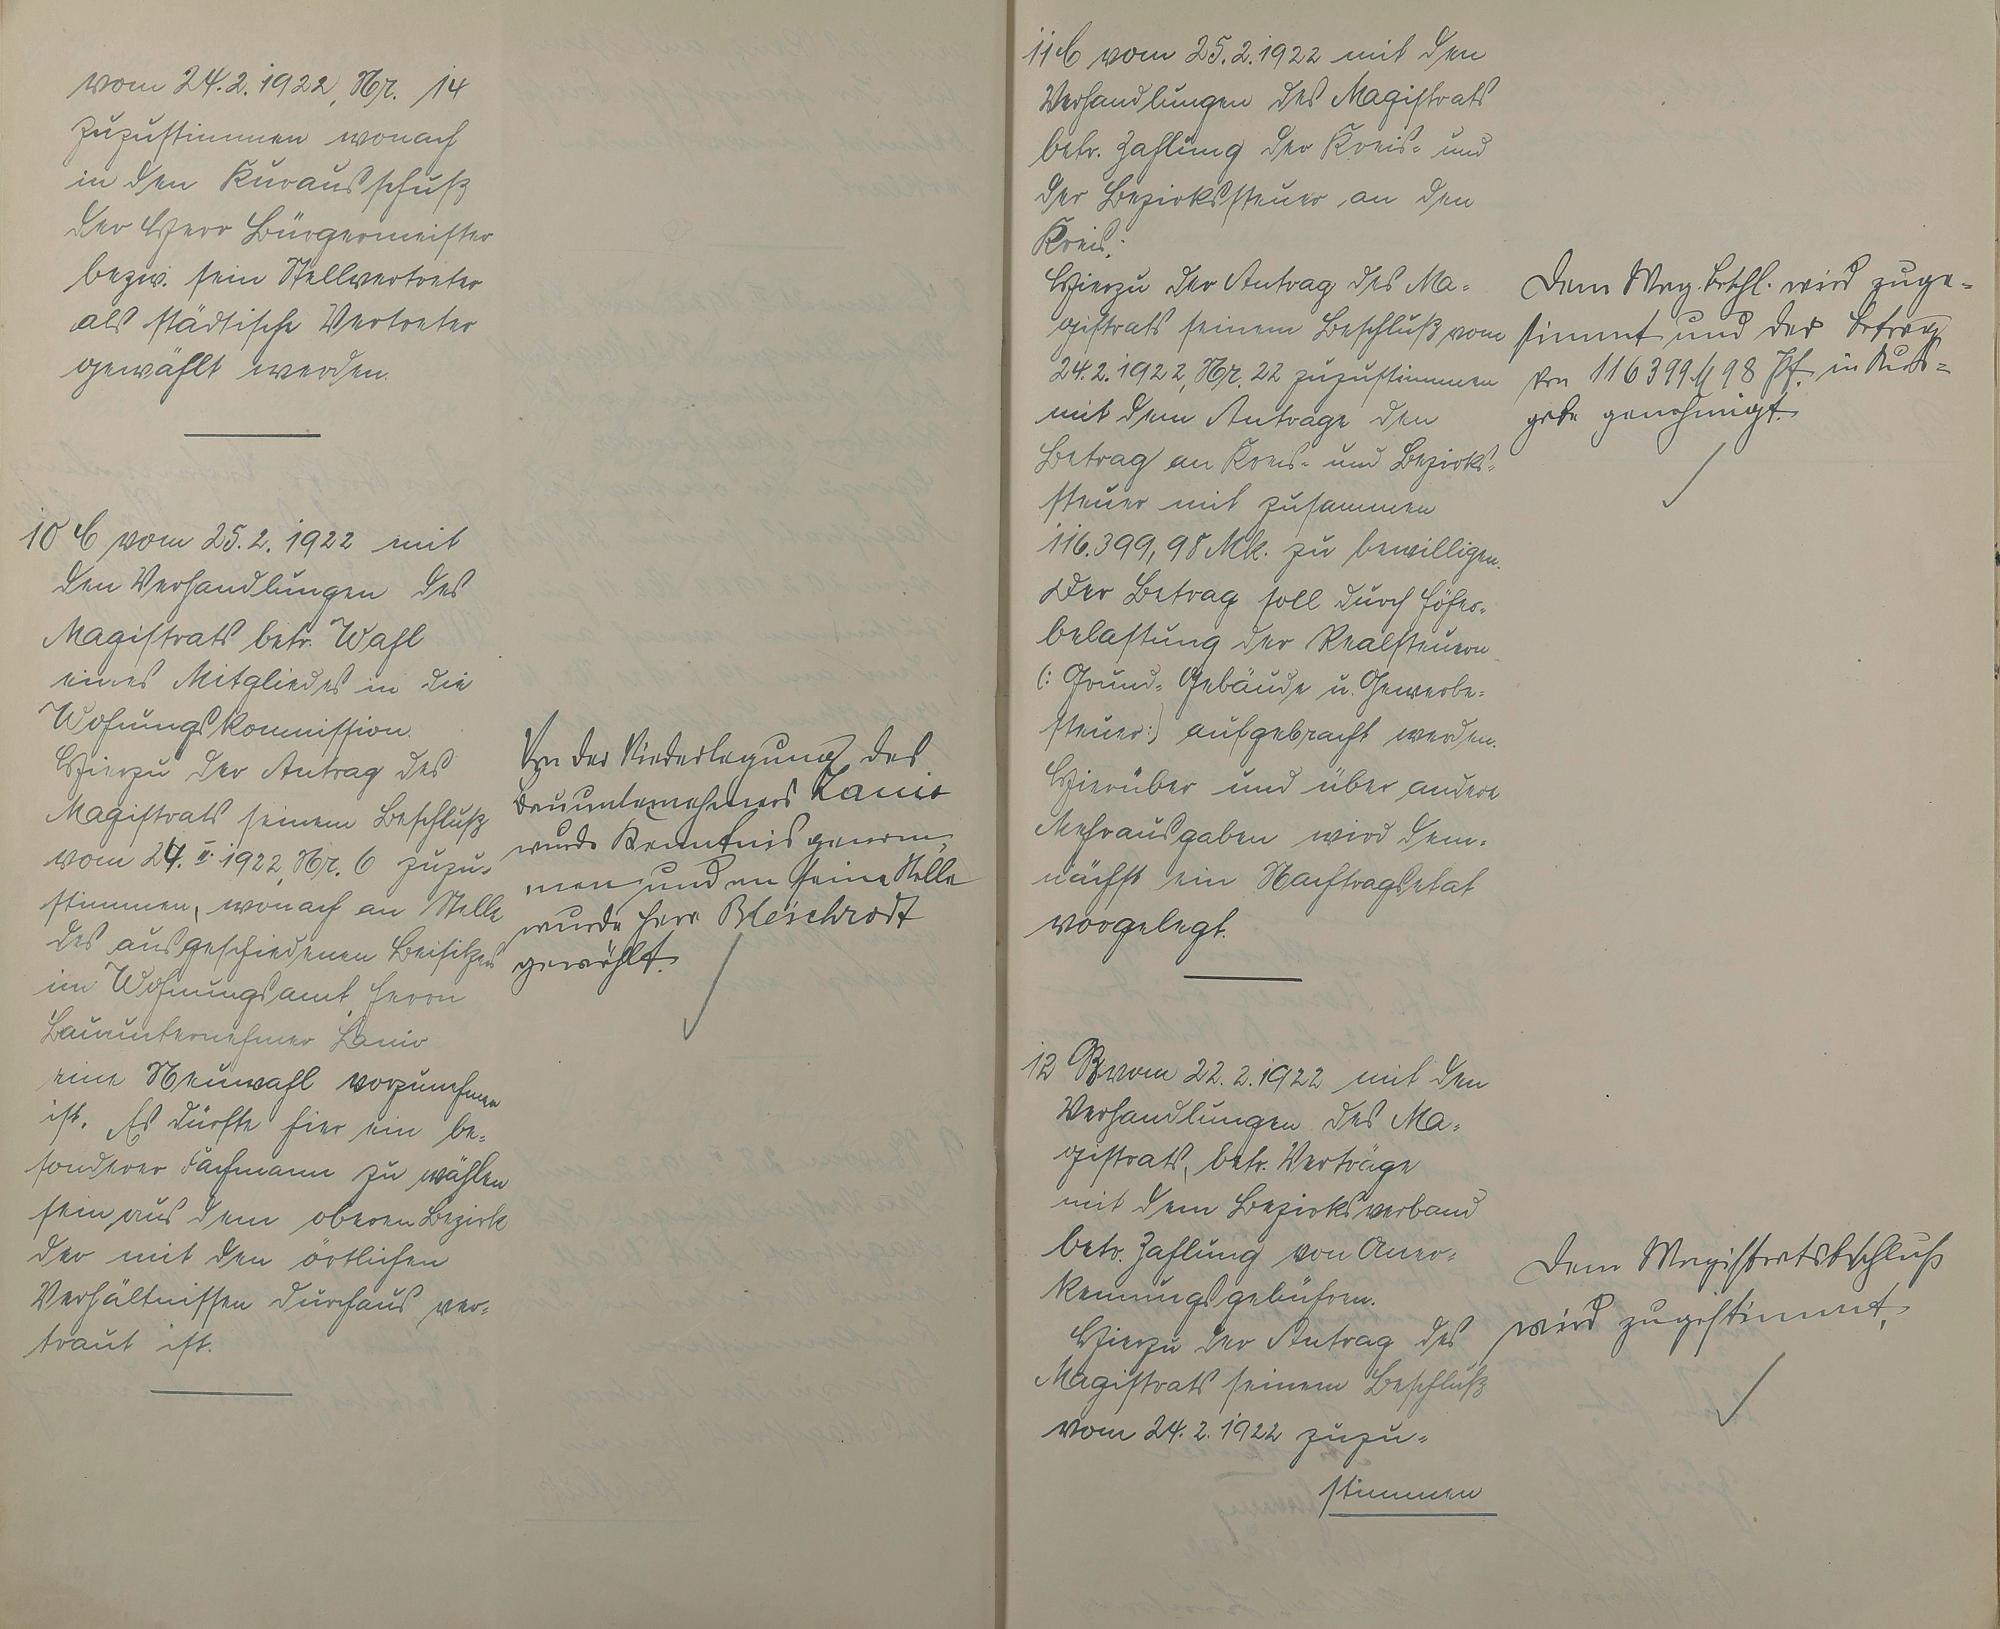 vom 24.2.1922, Nr. 14
zuzustimmen wonach
in den Kurausschuß
der Herr Bürgermeister
bezw. sein Stellvertreter
als städtische Vertreter
gewählt werden.
10 C vom 25.2.1922 mit
den Verhandlungen des
Magistrats betr. Wahl
eines Mitgliedes in die
Wohnungskommission.
Hierzu der Antrag des
Magistrats seinem Beschluß
vom 24. II. 1922, Nr. 6 zuzu-
stimmen, wonach an Stelle
des ausgeschiedenen Beisitzers
im Wohnungsamt, Herrn
Bauunternehmer Lanio
eine Neuwahl vorzunehmen
ist. Es dürfte hier ein be-
sonderer Fachmann zu wählen
sein aus dem oberen Bezirk
der mit den örtlichen
Verhältnissen durchaus ver-
traut ist.
Von der Niederlegung des
Bauunternehmers Lanio
wurde Kenntnis genom-
men und an seine Stelle
wurde Herr Bleichrodt
gewählt.
11 C vom 25.2.1922 mit den
Verhandlungen des Magistrats
betr. Zahlung der Kreis- und
der Bezirkssteuer an den
Kreis.
Hierzu der Antrag des Ma-
gistrats seinem Beschluß vom
24.2.1922, Nr. 22 zuzustimmen
mit dem Antrage den
Betrag an Kreis- und Bezirks-
steuer mit zusammen
116.399,98 Mk. zu bewilligen.
Der Betrag soll durch Höher-
belastung der Realsteuern
(: Grund- Gebäude u. Gewerbe-
steuer:) aufgebracht werden.
Hierüber und über andere
Mehrausgaben wird dem-
nächst ein Nachtragsetat
vorgelegt.
Dem Mag. Bschl. wird zuge-
stimmt und der Betrag
von 116399 M 98 Pf. in Aus-
gabe genehmigt.
12 B vom 22.2.1922 mit den
Verhandlungen des Ma-
gistrats, betr. Verträge
mit dem Bezirksverband
betr. Zahlung von Aner-
kennungsgebühren.
Hierzu der Antrag des
Magistrats seinem Beschluß
vom 24.2.1922 zuzu-
stimmen
Dem Magistratsbschluß
wird zugestimmt.